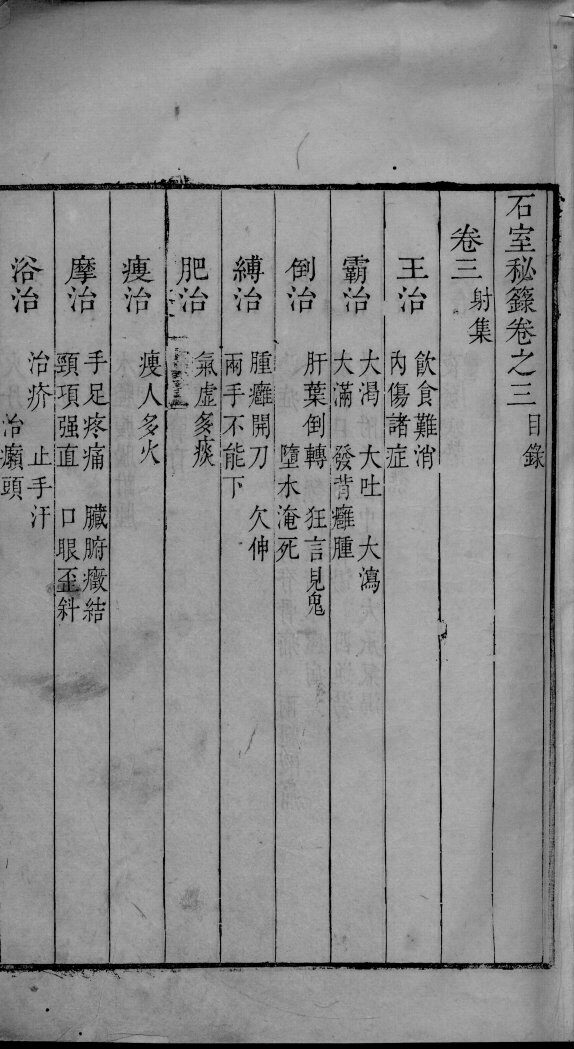 石室秘籙卷之三 目錄
卷三 射集
王治 飲食難消 內傷諸症
霸治 大渴 大吐 大瀉 大滿 發背癰腫
倒治 肝葉倒轉 狂言見鬼 墮水淹死
縛治 腫癰開刀 欠伸 兩手不能下
肥治 氣虛多痰
瘦治 瘦人多火
摩治 手足疼痛 臟腑癥結 頸項强直 口眼歪斜
浴治 治疥 止手汗 治癩頭